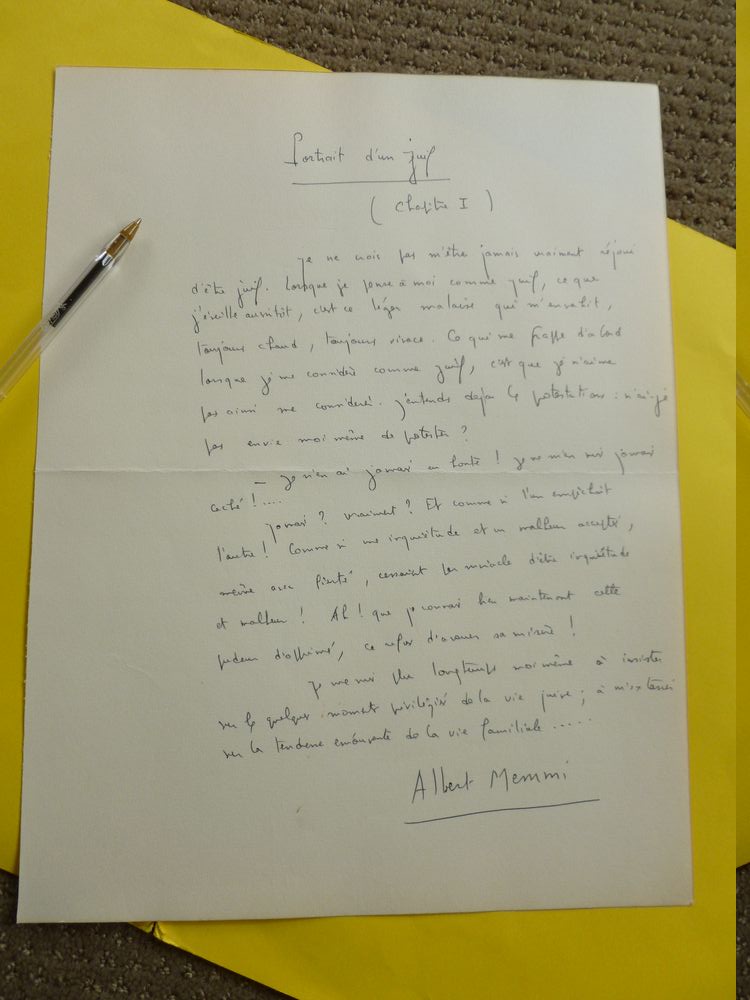 Portrait d'un juif
(Chapitre I)
Je ne crois pas m'être jamais vraiment réjoui
d'être juif. Lorsque je pense à moi comme juif, ce que
j'éveille aussitôt, c'est ce léger malaise qui m'envahit,
toujours chaud, toujours vivace. Ce qui me frappe d'abord
lorsque je me considère comme juif, c'est que je n'aime
pas ainsi me considérer. J'entends déjà les protestations : n'ai-je
pas envie moi même de protester ?
— Je n'en ai jamais eu honte ! Je ne m'en suis jamais
caché !....
Jamais ? Vraiment ? Et comme si l'un empêchait
l'autre ! Comme si une inquiétude et un malheur acceptés,
même avec fierté, cessaient par miracle d'être inquiétude
et malheur ! Ah ! que je connais bien maintenant cette
pudeur d'opprimé, ce refus d'avouer sa misère !
Je me suis plu longtemps moi même à insister
sur les quelques moments privilégiés de la vie juive ; à m'extasier
sur la tendresse émouvante de la vie familiale.....
Albert Memmi